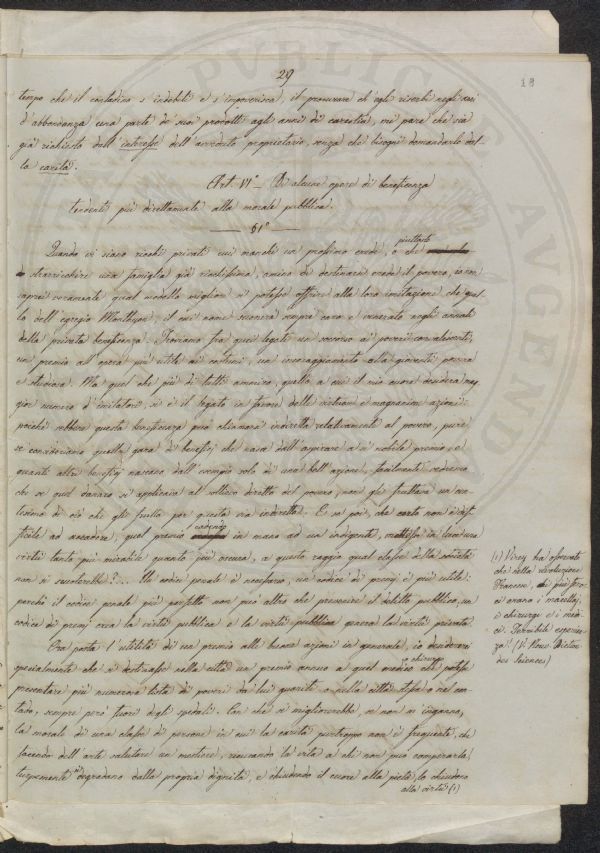 29
19
tempo che il contadino s'indebiti e s'impoverisca, il procurare ch'egli riserbi negli anni
d'abbondanza una parte de' suoi prodotti agli anni di carestia, mi pare che sia
già richiesto dall'interesse dell'avveduto proprietario, senza che bisogni domandarlo del-
la carità.
Art. VI° – Di alcune opere di beneficenza
tendenti più direttamente alla morale pubblica.
61°
Quando vi siano ricchi privati cui manchi un prossimo erede, o che piuttosto
di straricchire una famiglia già ricchissima, amino di destinare erede il povero, io non
saprei veramente qual modello migliore si potesse offrire alla loro imitazione che quel-
lo dell'egregio Monthyon, il cui nome suonerà sempre caro e venerato negli annali
della privata beneficenza. Troviamo fra quei legati un soccorso ai poveri convalescenti,
un premio all'opera più utile ai costumi, un incoraggiamento alla gioventù povera
e studiosa. Ma quel che più di tutti ammiro, quello a cui il mio cuore desidera mag-
gior numero d'imitatori, si è il legato in favore delle virtuose e magnanime azioni:
poiché sebbene questa beneficenza può chiamarsi indiretta relativamente al povero, pure
se consideriamo quella gara di benefizj che nasce dall'aspirare a sì nobile premio, e
quanti altri benefizj nascano dall'esempio solo di una bell'azione, facilmente vedremo
che se quel danaro si applicava al sollievo diretto del povero, non gli fruttava un cen-
tesimo di ciò che gli frutta per questa via indiretta. E se poi, che certo non è dif-
ficile ad accadere, quel premio cadendo in mano ad un indigente, mettesse in luce una
virtù tanto più mirabile quanto più oscura, a questo raggio qual classe della società
non si scuoterebbe?... Un codice penale è necessario, un codice di premj è più utile:
perché il codice penale più perfetto non può altro che prevenire il delitto pubblico, un
codice di premj crea la virtù pubblica e la virtù pubblica genera la virtù privata.
Ora posta l'utilità di un premio alle buone azioni in generale, io desidererei
specialmente che si destinasse nella città un premio annuo a quel medico o chirurgo che potesse
presentare più numerosa lista di poveri da lui guariti o nella città stessa o nel con-
tado, sempre però fuori degli spedali. Con che si migliorerebbe, se non m'inganno,
la morale di una classe di persone in cui la carità purtroppo non è frequente, che
facendo dell'arte salutare un mestiere, ricusando la vita a chi non può comperarla,
turpemente si degradano dalla propria dignità, e chiudendo il cuore alla pietà, lo chiudono
alla virtù (1)
(1) Virey ha osservato
che nella rivoluzione
Francese, i più fero-
ci erano i macellaj,
i chirurgi e i medi-
ci. Terribile esperien-
za! (V. Nouv. Diction.
des Sciences)